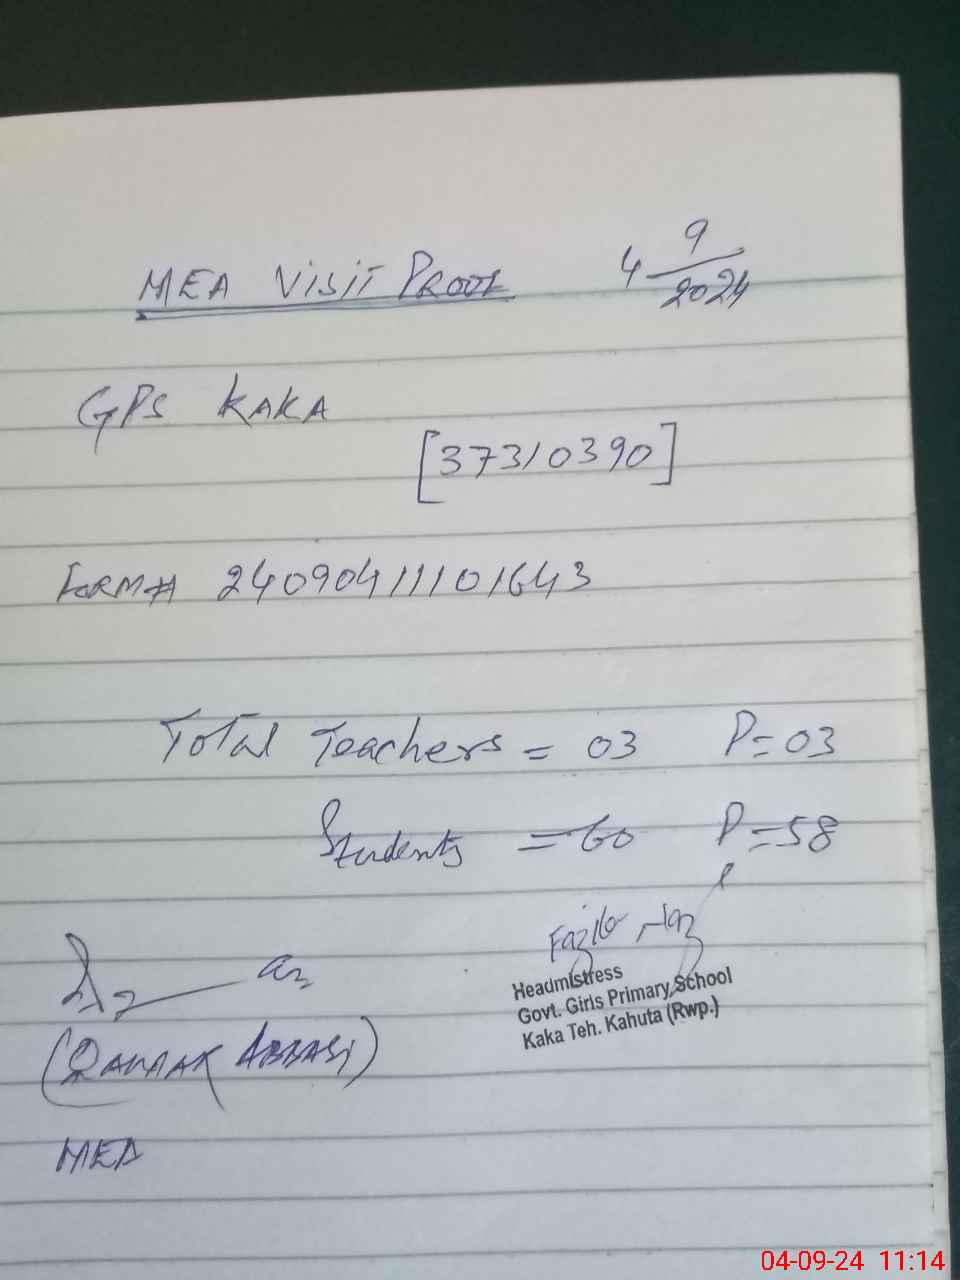 MEA Visit Proof 4 9/2024
GPS KAKA
[37310390]
Form# 24090411101643
Total Teachers = 03 P=03
Students = 60 P=58
Headmistress
Govt. Girls Primary School
Kaka Teh. Kahuta (Rwp.)
ABBASI)
MEA
04-09-24 11:14